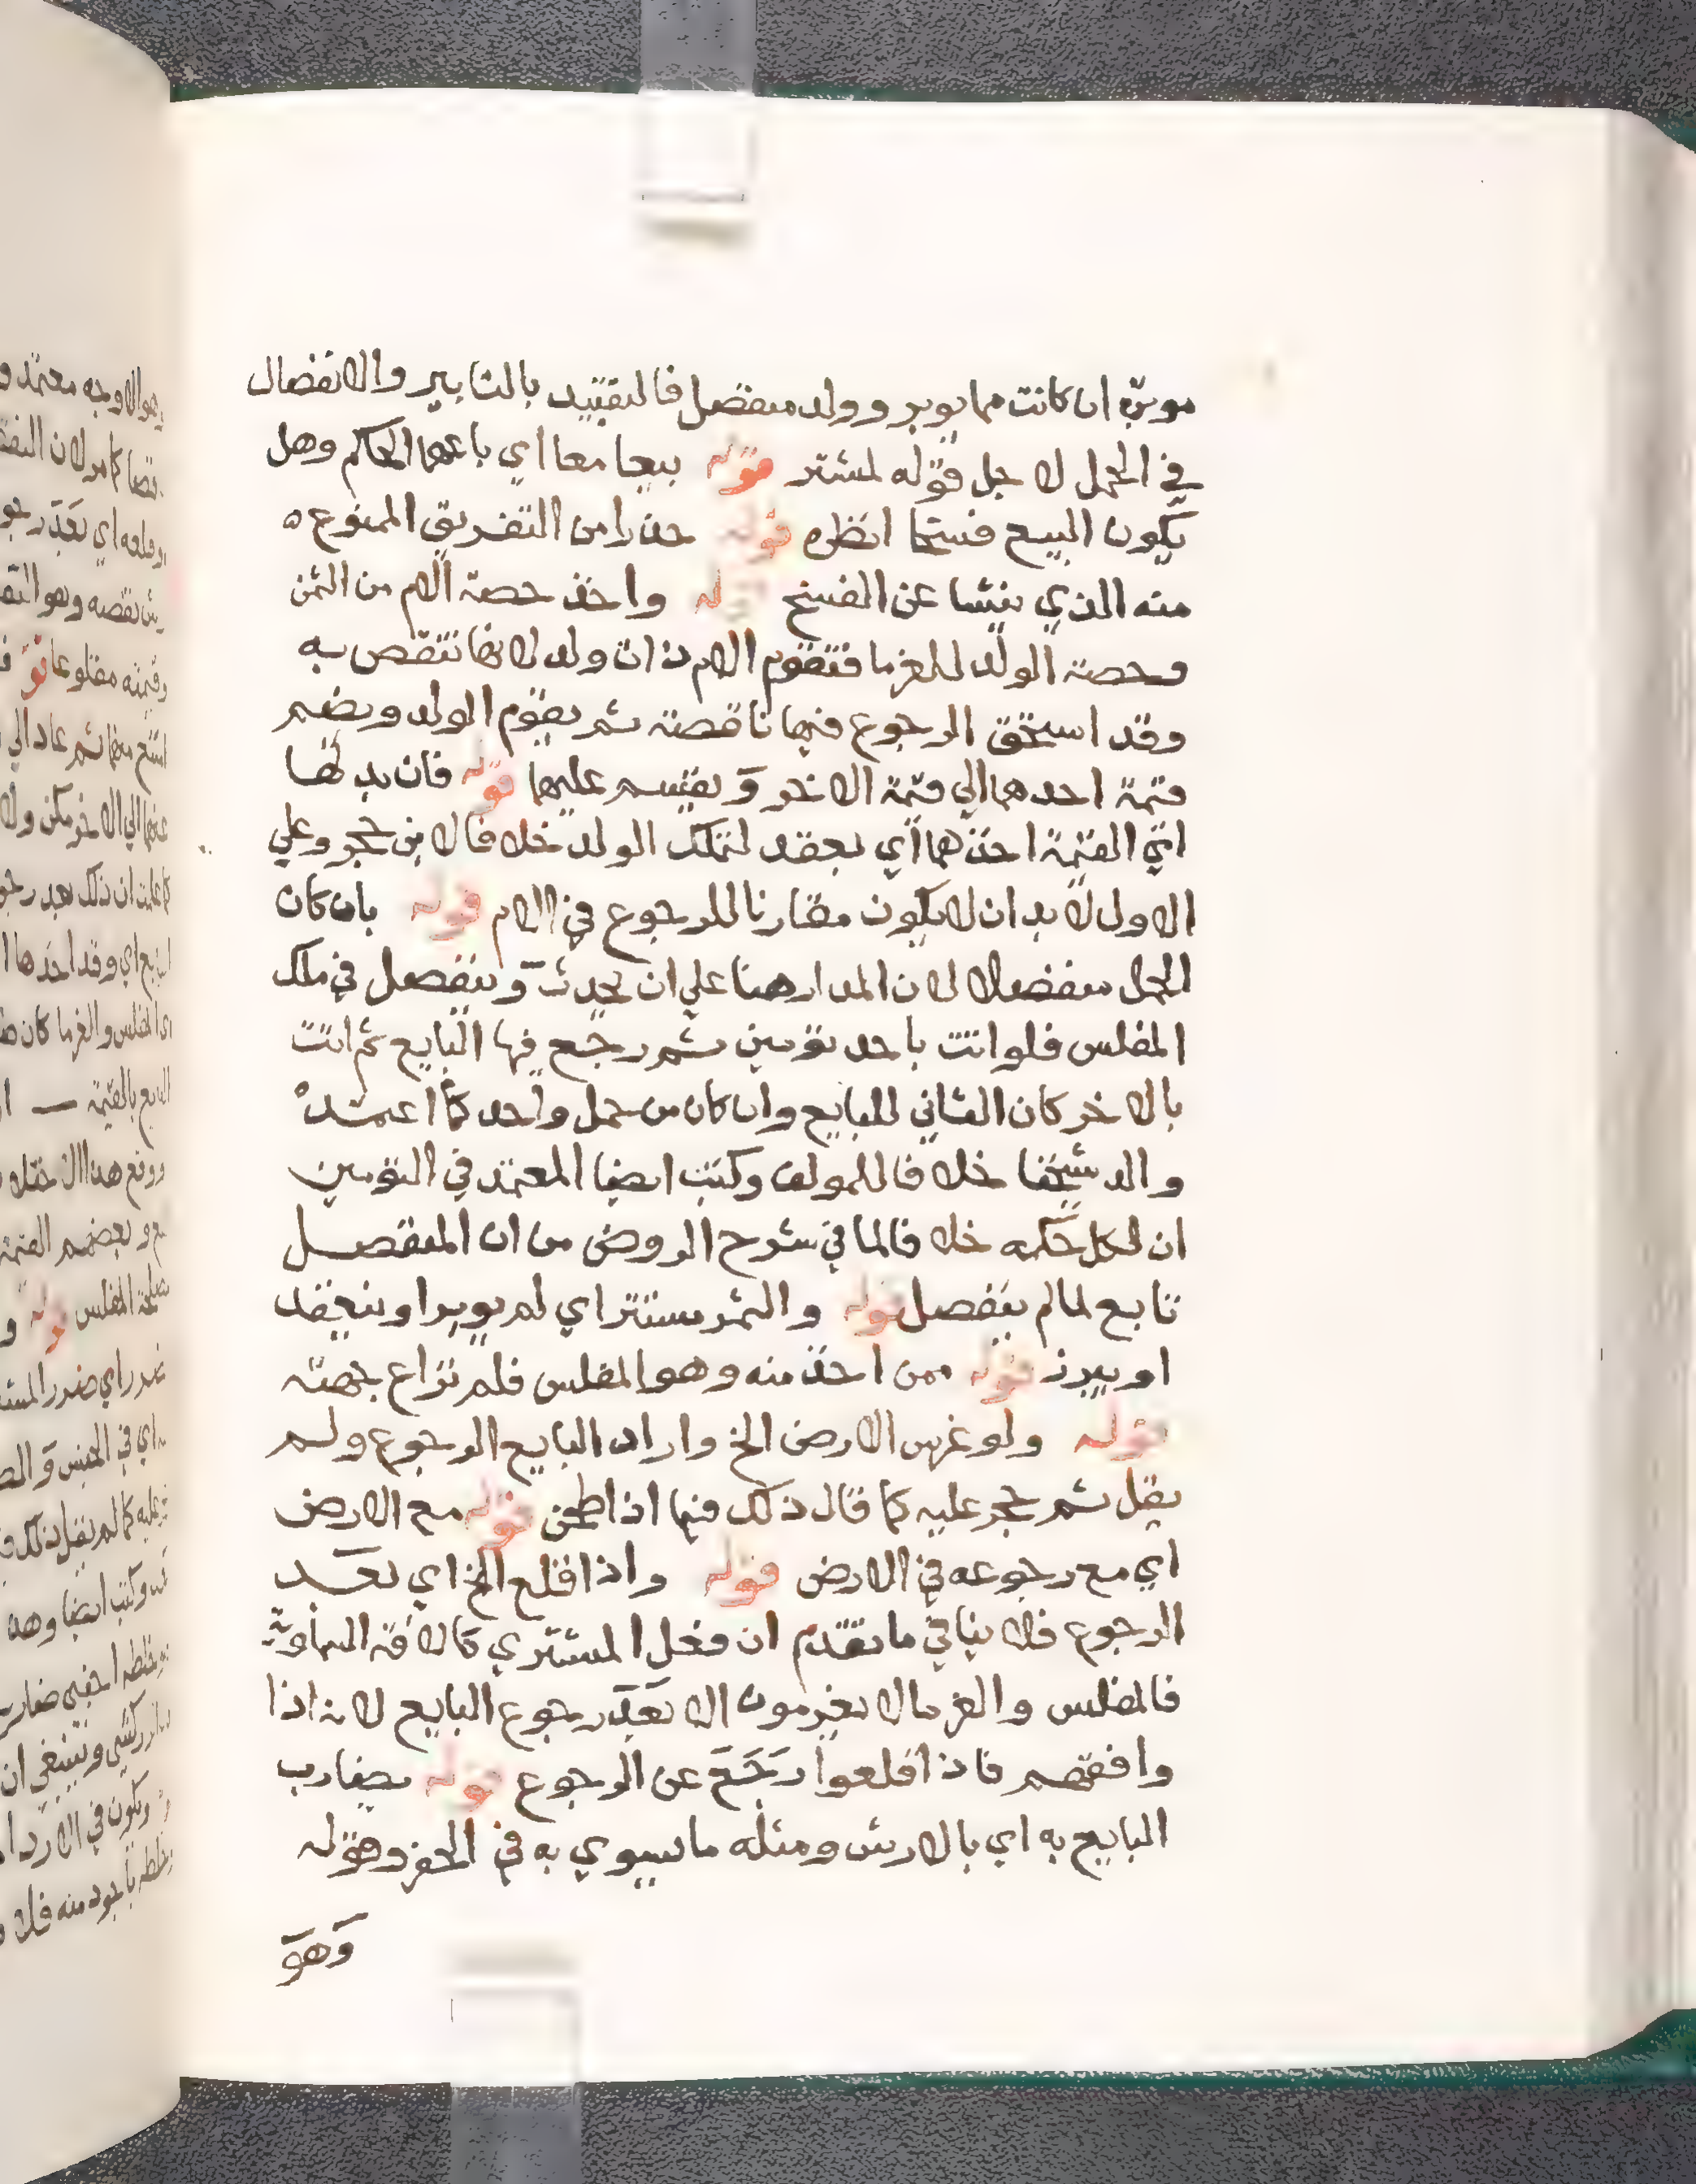 موبرة ان كانت مما يوبر وولد منفصل فالتقييد بالتابير والانفصال
في الحمل لاجل قوله لمشتر قوله بيعا معا اي باعهما الحاكم وهل
يكون البيع فسخا انظره قوله حذرا من التفريق الممنوع ه
منه الذي ينشا عن الفسخ قوله واخذ حصة الام من الثمن
وحصة الولد للغرما فتقوم الام ذات ولد لانها تنقص به
وقد استحق الرجوع فيها ناقصة ثم يقوم الولد ويضم
قيمة احدهما الي قيمة الاخر ويقسم عليهما قوله فان بذلها
اي القيمة اخذهما اي بعقد لتملك الولد خلافا لابن حجر وعلي
الاول لا بد ان لا يكون مقارنا للرجوع في الام قوله بان كان
الحمل منفصلا لان المدار هنا علي ان يحدث وينفصل في ملك
المفلس فلو اتت باحد تومين ثم رجع فيها البايع ثم اتت
بالاخر كان الثاني للبايع وان كان من حمل واحد كما اعتمده
والد شيخنا خلافا للمولف وكتب ايضا المعتمد في التومين
ان لكل حكمه خلافا لما في شرح الروض من ان المنفصل
تابع لما لم ينفصل قوله والثمر مستتر اي لم يوبر او ينعقد
او يبرز قوله ممن اخذ منه وهو المفلس فلم تراع جهته
قوله ولو غرس الارض الخ واراد البايع الرجوع ولم
يقل ثم حجر عليه كما قال ذلك فيما اذا طحن قوله مع الارض
اي مع رجوعه في الارض قوله واذا قلع الخ اي بعد
الرجوع فلا ينافي ما تقدم ان فعل المشتري كالافة السماوية
فالمفلس والغرما لا يغرمون الا بعد رجوع البايع لانه اذا
وافقهم فاذا قلعوا رجع عن الرجوع قوله يضارب
البايع به اي بالارش ومثله ما يسوي به في الحفر وقوله
وهو